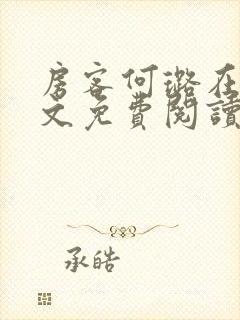 房客何璐在
文免費閱讀
承皓